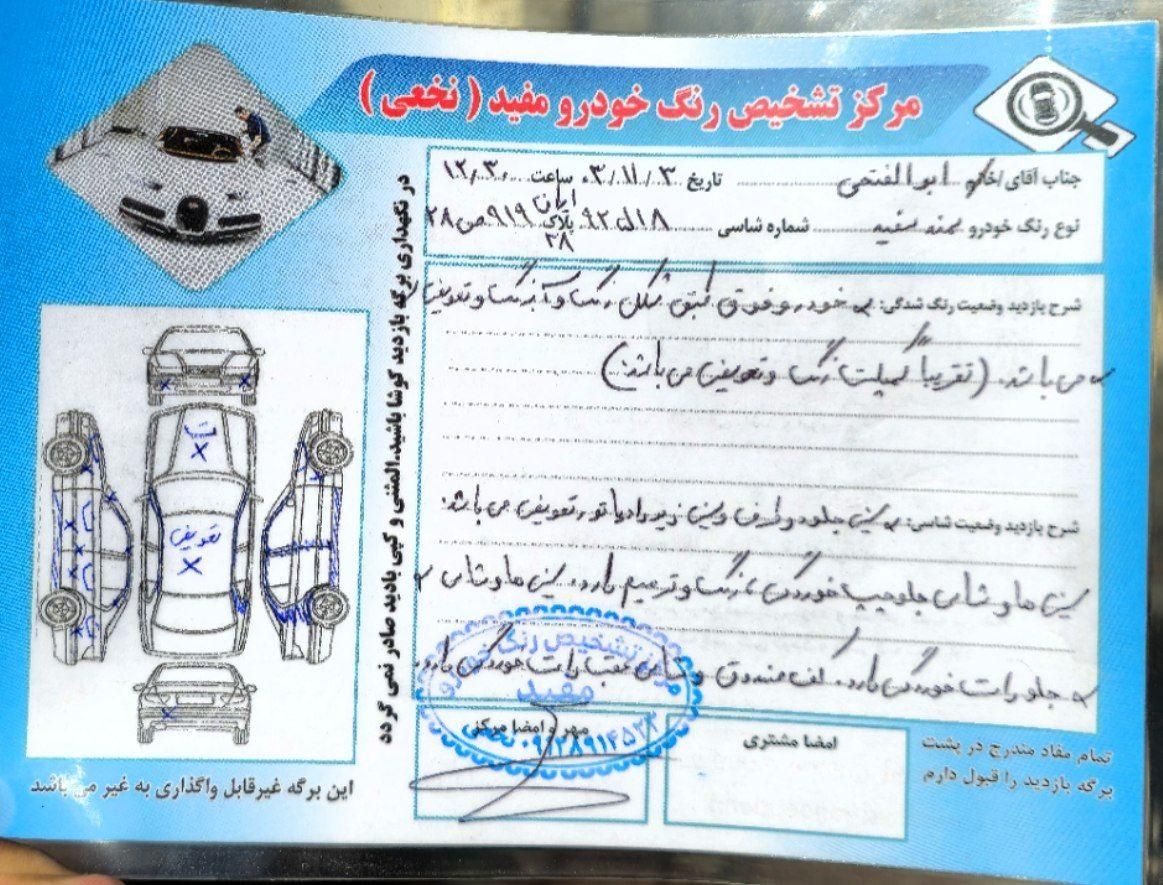 مرکز تشخیص رنگ خودرو مفید ( نخعی )
جناب آقای/خانم ابوالفتحی تاریخ ۰۳/۱۱/۳ ساعت ۱۲/۳۰
نوع رنگ خودرو سمند سفید شماره شاسی پلاک ایران ۳۸
شرح بازدید وضعیت رنگ شدگی: خودرو فوق طبق شکل رنگ و آبرنگ و تعویض
می باشد. (تقریباً کمپلت رنگ و تعویض می باشد)
شرح بازدید وضعیت شاسی: سینی جلو و اطراف و سینی زیر رادیاتور تعویض می باشد.
سینی ها و شاسی جلو چپ خوردگی رنگ و ترمیم دارد. سینی ها و شاسی
جلو راست خوردگی دارد. کف صندوق و شاسی عقب راست خوردگی دارد.
مهر و امضا مرکز
امضا مشتری
تمام مفاد مندرج در پشت
برگه بازدید را قبول دارم
مرکز تشخیص رنگ خودرو
مفید
در نگهداری برگه بازدید کوشا باشید.المثنی و کپی بادید صادر نمی گردد
ت
تعویض
این برگه غیرقابل واگذاری به غیر می باشد